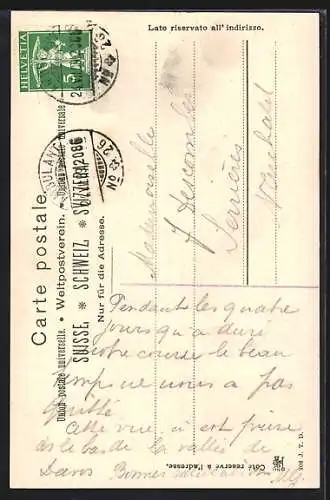 Lato riservato all' indirizzo.
HELVETIA
5
Carte postale.
Weltpostverein.
Union postale universelle.
SUISSE * SCHWEIZ * SVIZZERA
Nur für die Adresse.
AMBULANT
Mademoiselle
J Descombes
Serrières
Neuchâtel
Pendants les quatre
jours qu'a duré
notre course le beau
temp ne nous a pas
quitté
Cette vue a est prise
dès le bas de la vallée de
Davos Bonnes
Côté réservé à l'adresse.
J. T. D.